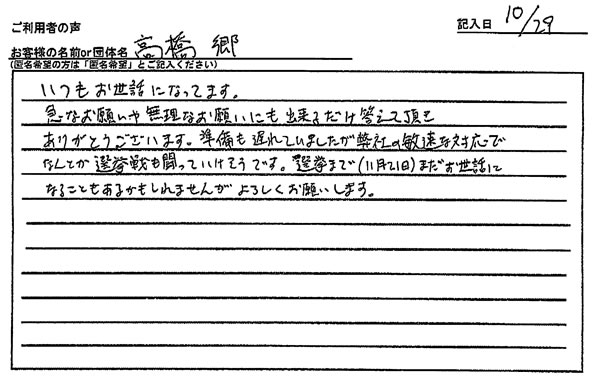 ご利用者の声
記入日 10/29
お客様の名前or団体名 高橋 郷
(匿名希望の方は「匿名希望」とご記入ください)
いつもお世話になってます。
急なお願いや無理なお願いにも出来るだけ答えて頂き
ありがとうございます。準備も遅れていましたが弊社の敏速な対応で
なんとか選挙戦も闘っていけそうです。選挙まで(11月21日)まだお世話に
なることもあるかもしれませんがよろしくお願いします。